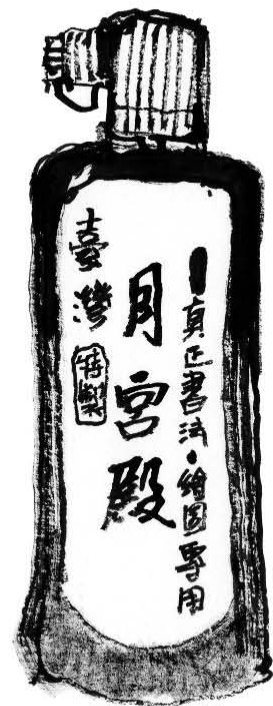 真正書法·繪圖專用
月宮殿
臺灣特製